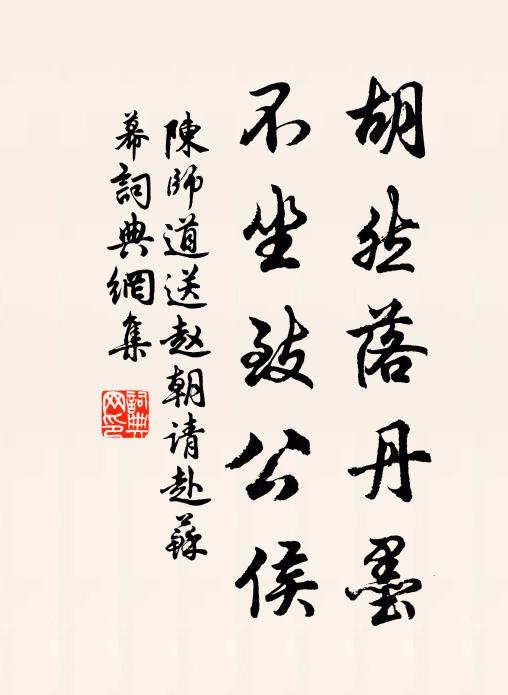 胡然落丹墨
不坐致公侯
陳師道送赵朝请赴蘇
幕詞典網集
詞典网印